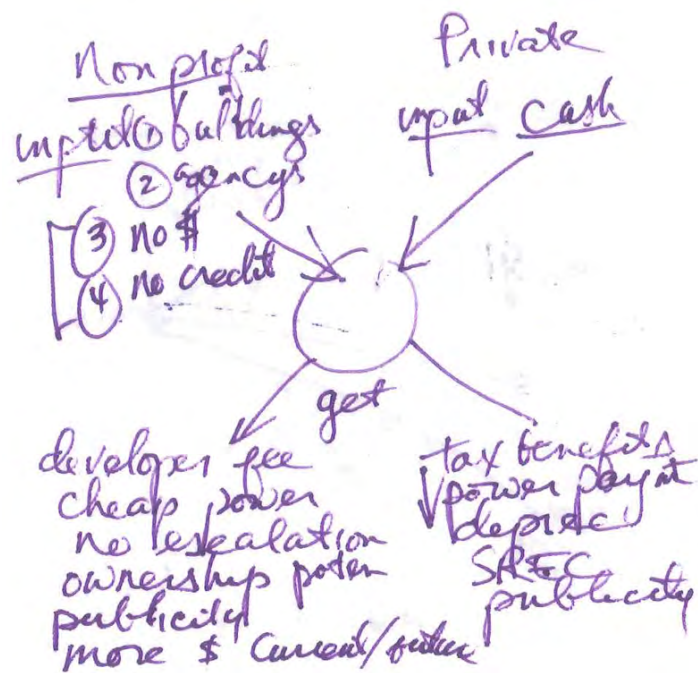 Non profit
input ① buildings
② agencys
③ no $
④ no credit
Private
input cash
get
developer fee
cheap power
no escalation
ownership poten
publicity
more $ current/future
tax benefits
power paymt
deprec
SREC
publicity